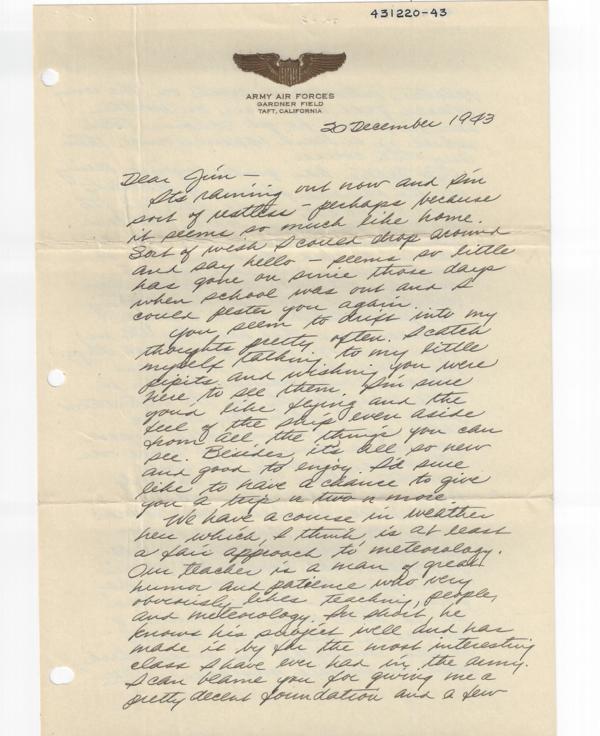 431220-43
ARMY AIR FORCES
GARDNER FIELD
TAFT, CALIFORNIA
20 December 1943
Dear Jim —
Its raining out now and I'm
sort of restless – perhaps because
it seems so much like home.
Sort of wish I could drop around
and say hello – seems so little
has gone on since those days
when school was out and I
could pester you again.
You seem to drift into my
thoughts pretty often. I catch
myself talking to my little
pipits and wishing you were
here to see them. I'm sure
you'd like flying and the
feel of the ship even aside
from all the things you can
see. Besides, it's all so new
and good to enjoy. I'd sure
like to have a chance to give
you a trip or two or more.
We have a course in weather
here which, I think, is at least
a fair approach to meteorology.
Our teacher is a man of great
humor and patience who very
obviously likes teaching, people,
and meteorology. In short he
knows his subject well and has
made it by far the most interesting
class I have ever had in the army.
I can blame you for giving me a
pretty decent foundation and a few